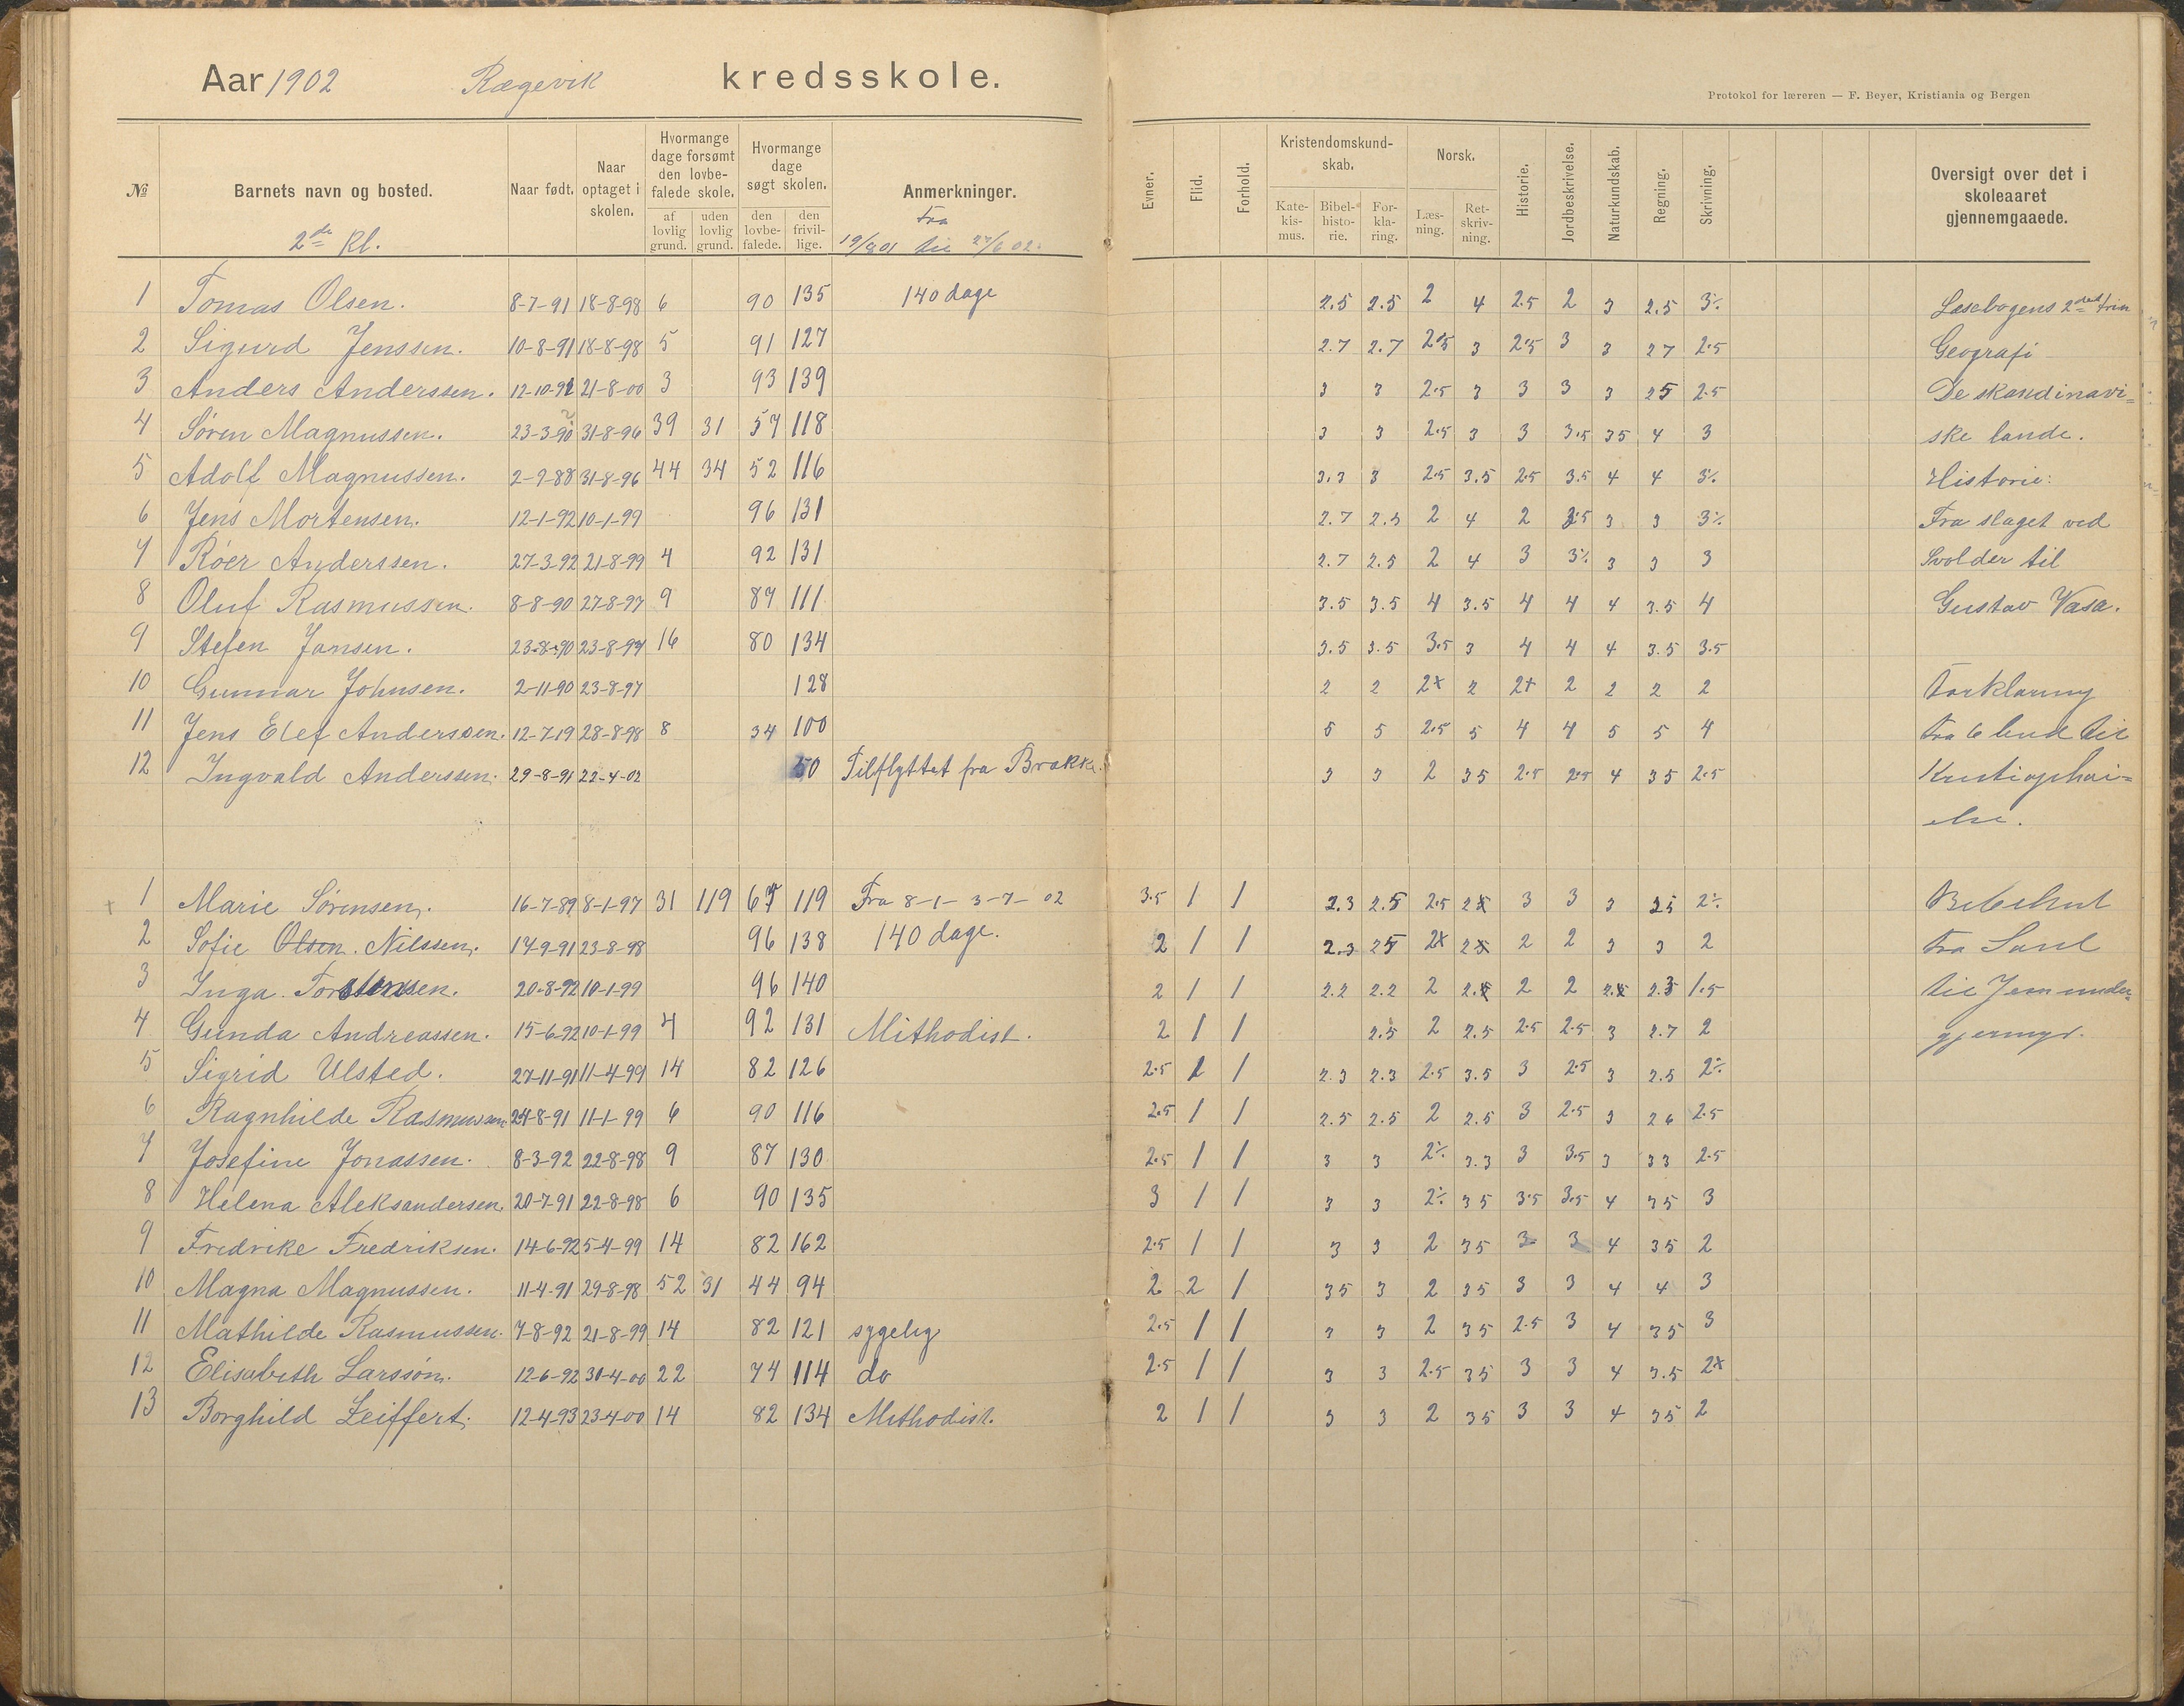 Aar 1902 Rægevik kredsskole.
Protokol for læreren — F. Beyer, Kristiania og Bergen
№ Barnets navn og bosted. Naar født. Naar optaget i skolen. Hvormange dage forsømt den lovbefalede skole. af lovlig grund. uden lovlig grund. Hvormange dage søgt skolen. den lovbefalede. den frivillige. Anmerkninger.
Evner. Flid. Forhold. Kristendomskundskab. Katekismus. Bibelhistorie. Forklaring. Norsk. Læsning. Retskrivning. Historie. Jordbeskrivelse. Naturkundskab. Regning. Skrivning. Oversigt over det i skoleaaret gjennemgaaede.
2de Kl. Fra 19/8 01 til 27/6 02.
1 Tomas Olsen. 8-7-91 18-8-98 6 90 135 140 dage 2.5 2.5 2 4 2.5 2 3 2.5 3÷ Læsebogens 2det trin
2 Sigurd Jenssen. 10-8-91 18-8-98 5 91 127 2.7 2.7 2.5 3 2.5 3 3 27 2.5 Geografi
3 Anders Anderssen. 12-10-91 21-8-00 3 93 139 3 3 2.5 3 3 3 3 25 2.5 De skandinavi=
4 Søren Magnussen. 23-3-90 31-8-96 39 31 57 118 3 3 2.5 3 3 3.5 35 4 3 ske lande.
5 Adolf Magnussen. 2-9-88 31-8-96 44 34 52 116 3.3 3 2.5 3.5 2.5 3.5 4 4 3÷ Historie:
6 Jens Mortensen. 12-1-92 10-1-99 96 131 2.7 2.5 2 4 2 3.5 3 3 3÷ Fra slaget ved
7 Roer Anderssen. 27-3-92 21-8-99 4 92 131 2.7 2.5 2 4 3 3÷ 3 3 3 Svolder til
8 Oluf Rasmussen. 8-8-90 27-8-97 9 87 111 3.5 3.5 4 3.5 4 4 4 3.5 4 Gustav Vasa.
9 Stefen Jansen. 23-8-90 23-8-97 16 80 134 3.5 3.5 3.5 3 4 4 4 3.5 3.5
10 Gunnar Johnsen. 2-11-90 23-8-97 128 2 2 2+ 2 2+ 2 2 2 2 Forklaring
11 Jens Elef Anderssen. 12-7-19 28-8-98 8 34 100 5 5 2.5 5 4 4 5 5 4 fra 6 bud til
12 Ingvald Anderssen. 29-8-91 22-4-02 50 Tilflyttet fra Brække. 3 3 2 35 2.5 2.5 4 35 2.5
1 Marie Sørensen. 16-7-89 8-1-97 31 119 67 119 Fra 8-1-3-7-02 3.5 1 1 2.3 2.5 2.5 3 3 3 2÷ Bibelhist
2 Sofie Olsen. Nilssen. 14-9-91 23-8-98 96 138 140 dage. 2 1 1 2.3 25 2+ 2 2 3 3 2 fra Saul
3 Inga Torstensen. 20-8-92 10-1-99 96 140 2 1 1 2.2 2.2 2 2 2 2.3 1.5 til Jesu under=
4 Gunda Andreassen. 15-6-92 10-1-99 4 92 131 Mithodist. 2 1 1 2.5 2 2.5 2.5 2.5 3 2.7 2 gjerninger.
5 Sigrid Ulsted. 27-11-91 11-4-99 14 82 126 2.5 1 1 2.3 2.3 2.5 3.5 3 2.5 3 2.5 2÷
6 Ragnhilde Rasmussen 24-8-91 11-1-99 6 90 116 2.5 1 1 2.5 2.5 2 2.5 3 2.5 3 26 2.5
7 Josefine Jonassen. 8-3-92 22-8-98 9 87 130 2.5 1 1 3 3 2÷ 3.3 3 3.5 3 33 2.5
8 Helena Aleksandersen. 20-7-91 22-8-98 6 90 135 3 1 1 3 3 2÷ 35 3.5 3.5 4 35 3
9 Fredrike Fredriksen. 14-6-92 5-4-99 14 82 162 2.5 1 1 3 3 2 35 3 3 4 35 2
10 Magna Magnussen. 11-4-91 29-8-98 52 31 44 94 2 2 1 35 3 2 35 3 3 4 4 3
11 Mathilde Rasmussen. 7-8-92 21-8-99 14 82 121 sygelig 2.5 1 1 3 3 2 35 2.5 3 4 35 3
12 Elisabeth Larssøn. 12-6-92 30-4-00 22 74 114 do 2.5 1 1 3 3 2.5 35 3 3 4 3.5 2+
13 Borghild Zeiffert. 12-4-93 23-4-00 14 82 134 Mithodist. 2 1 1 3 3 2 35 3 3 4 35 2